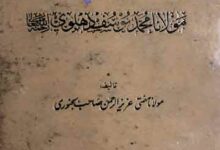 مولانا محمد یوسف دہلوی
تالیف
مولانا مفتی عزیز الرحمن صاحب بجنوری